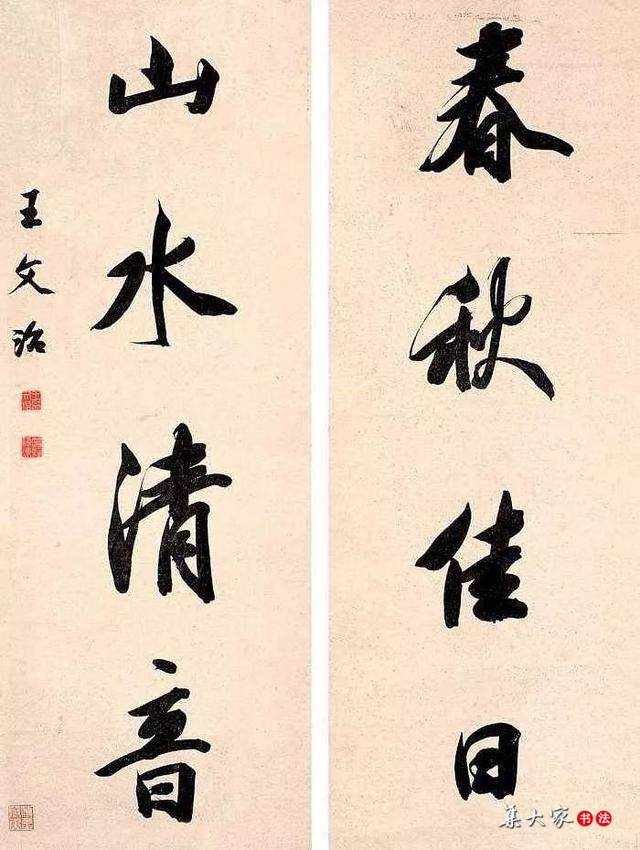 春秋佳日
山水清音
王文治
集大家书法